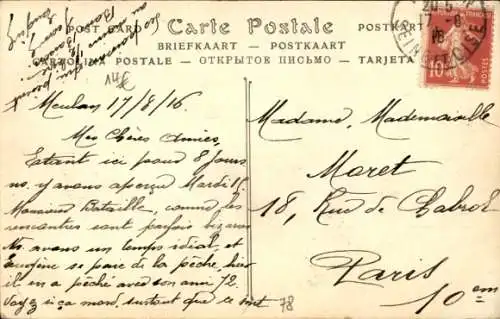 POST CARD
Carte Postale
POSTKART
BRIEFKAART - POSTKAART
CARTOLINA POSTALE - ОТКРЫТОЕ ПИСЬМО - TARJETA
14€
Meulan 17/8/16
Mes Chères Amies,
Etant ici pour 8 jours
ns. y avons aperçu Mardi 15
Monsieur Bataille, comme les
rencontres sont parfois bizarres
Ns. avons un temps idéal, et
se pare de la pêche, hier
il en a pêché avec son ami 72.
Voyez si ça mord, surtout que ce sont
78
Madame, Mademoiselle
Moret
18, Rue de Chabrol
Paris
10em
20-5
17-8
16
SEINE ET OISE
POSTES
10